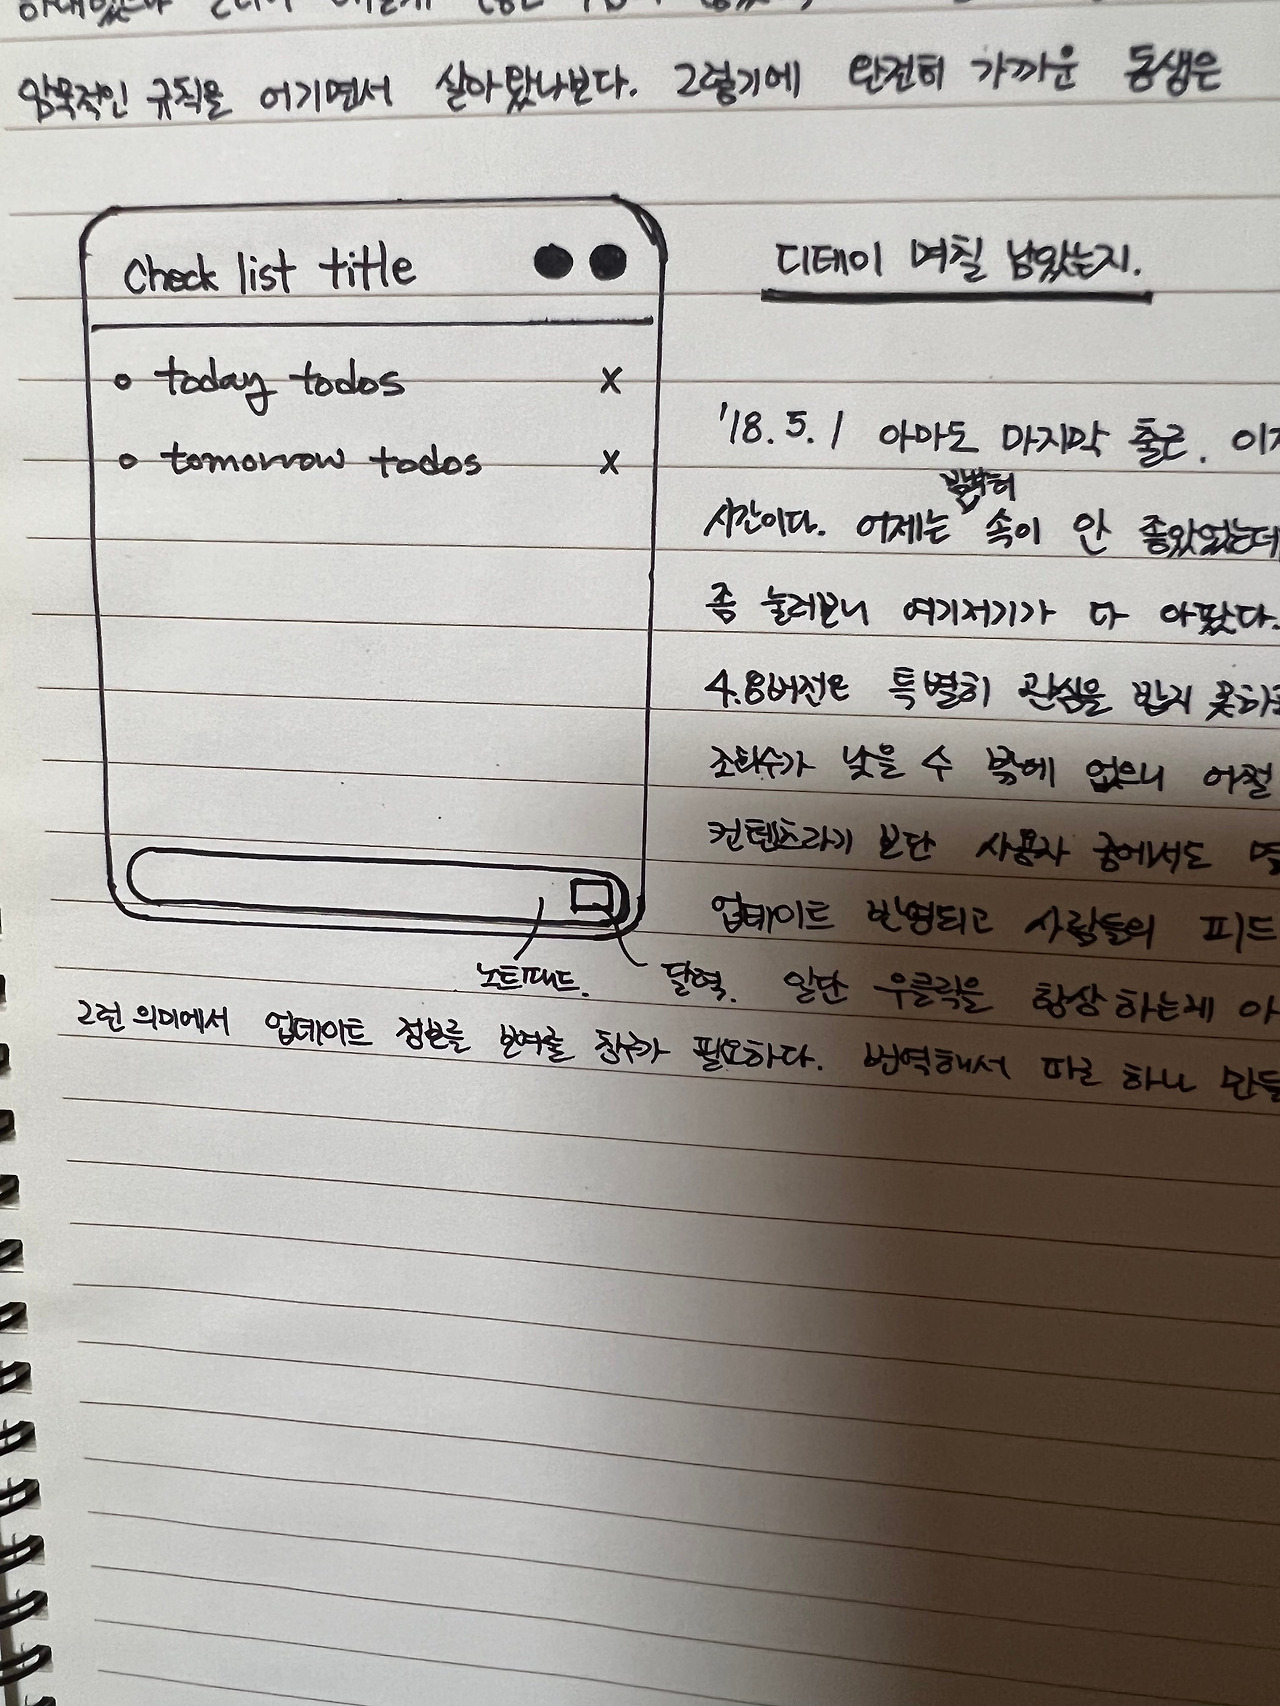 암묵적인 규칙을 어기면서 살아왔나보다. 그렇기에 완전히 가까운 동생은
Check list title
today todos X
tomorrow todos X
디데이 며칠 남았는지.
'18. 5. 1 아마도 마지막 출근. 이
시간이다. 어제는 속이 안 좋았었는데
좀 눌러보니 여기저기가 다 아팠다.
4.8버전은 특별히 관심을 받지 못하
조회수가 낮을 수 밖에 없으니 어쩔
컨텐츠라기 보단 사용자 중에서도
업데이트 반영되고 사람들의 피드
노트패드. 달력. 일단 우클릭을 항상 하는게 아
그런 의미에서 업데이트 정보를 보여줄 친구가 필요하다. 번역해서 따로 하나 만들